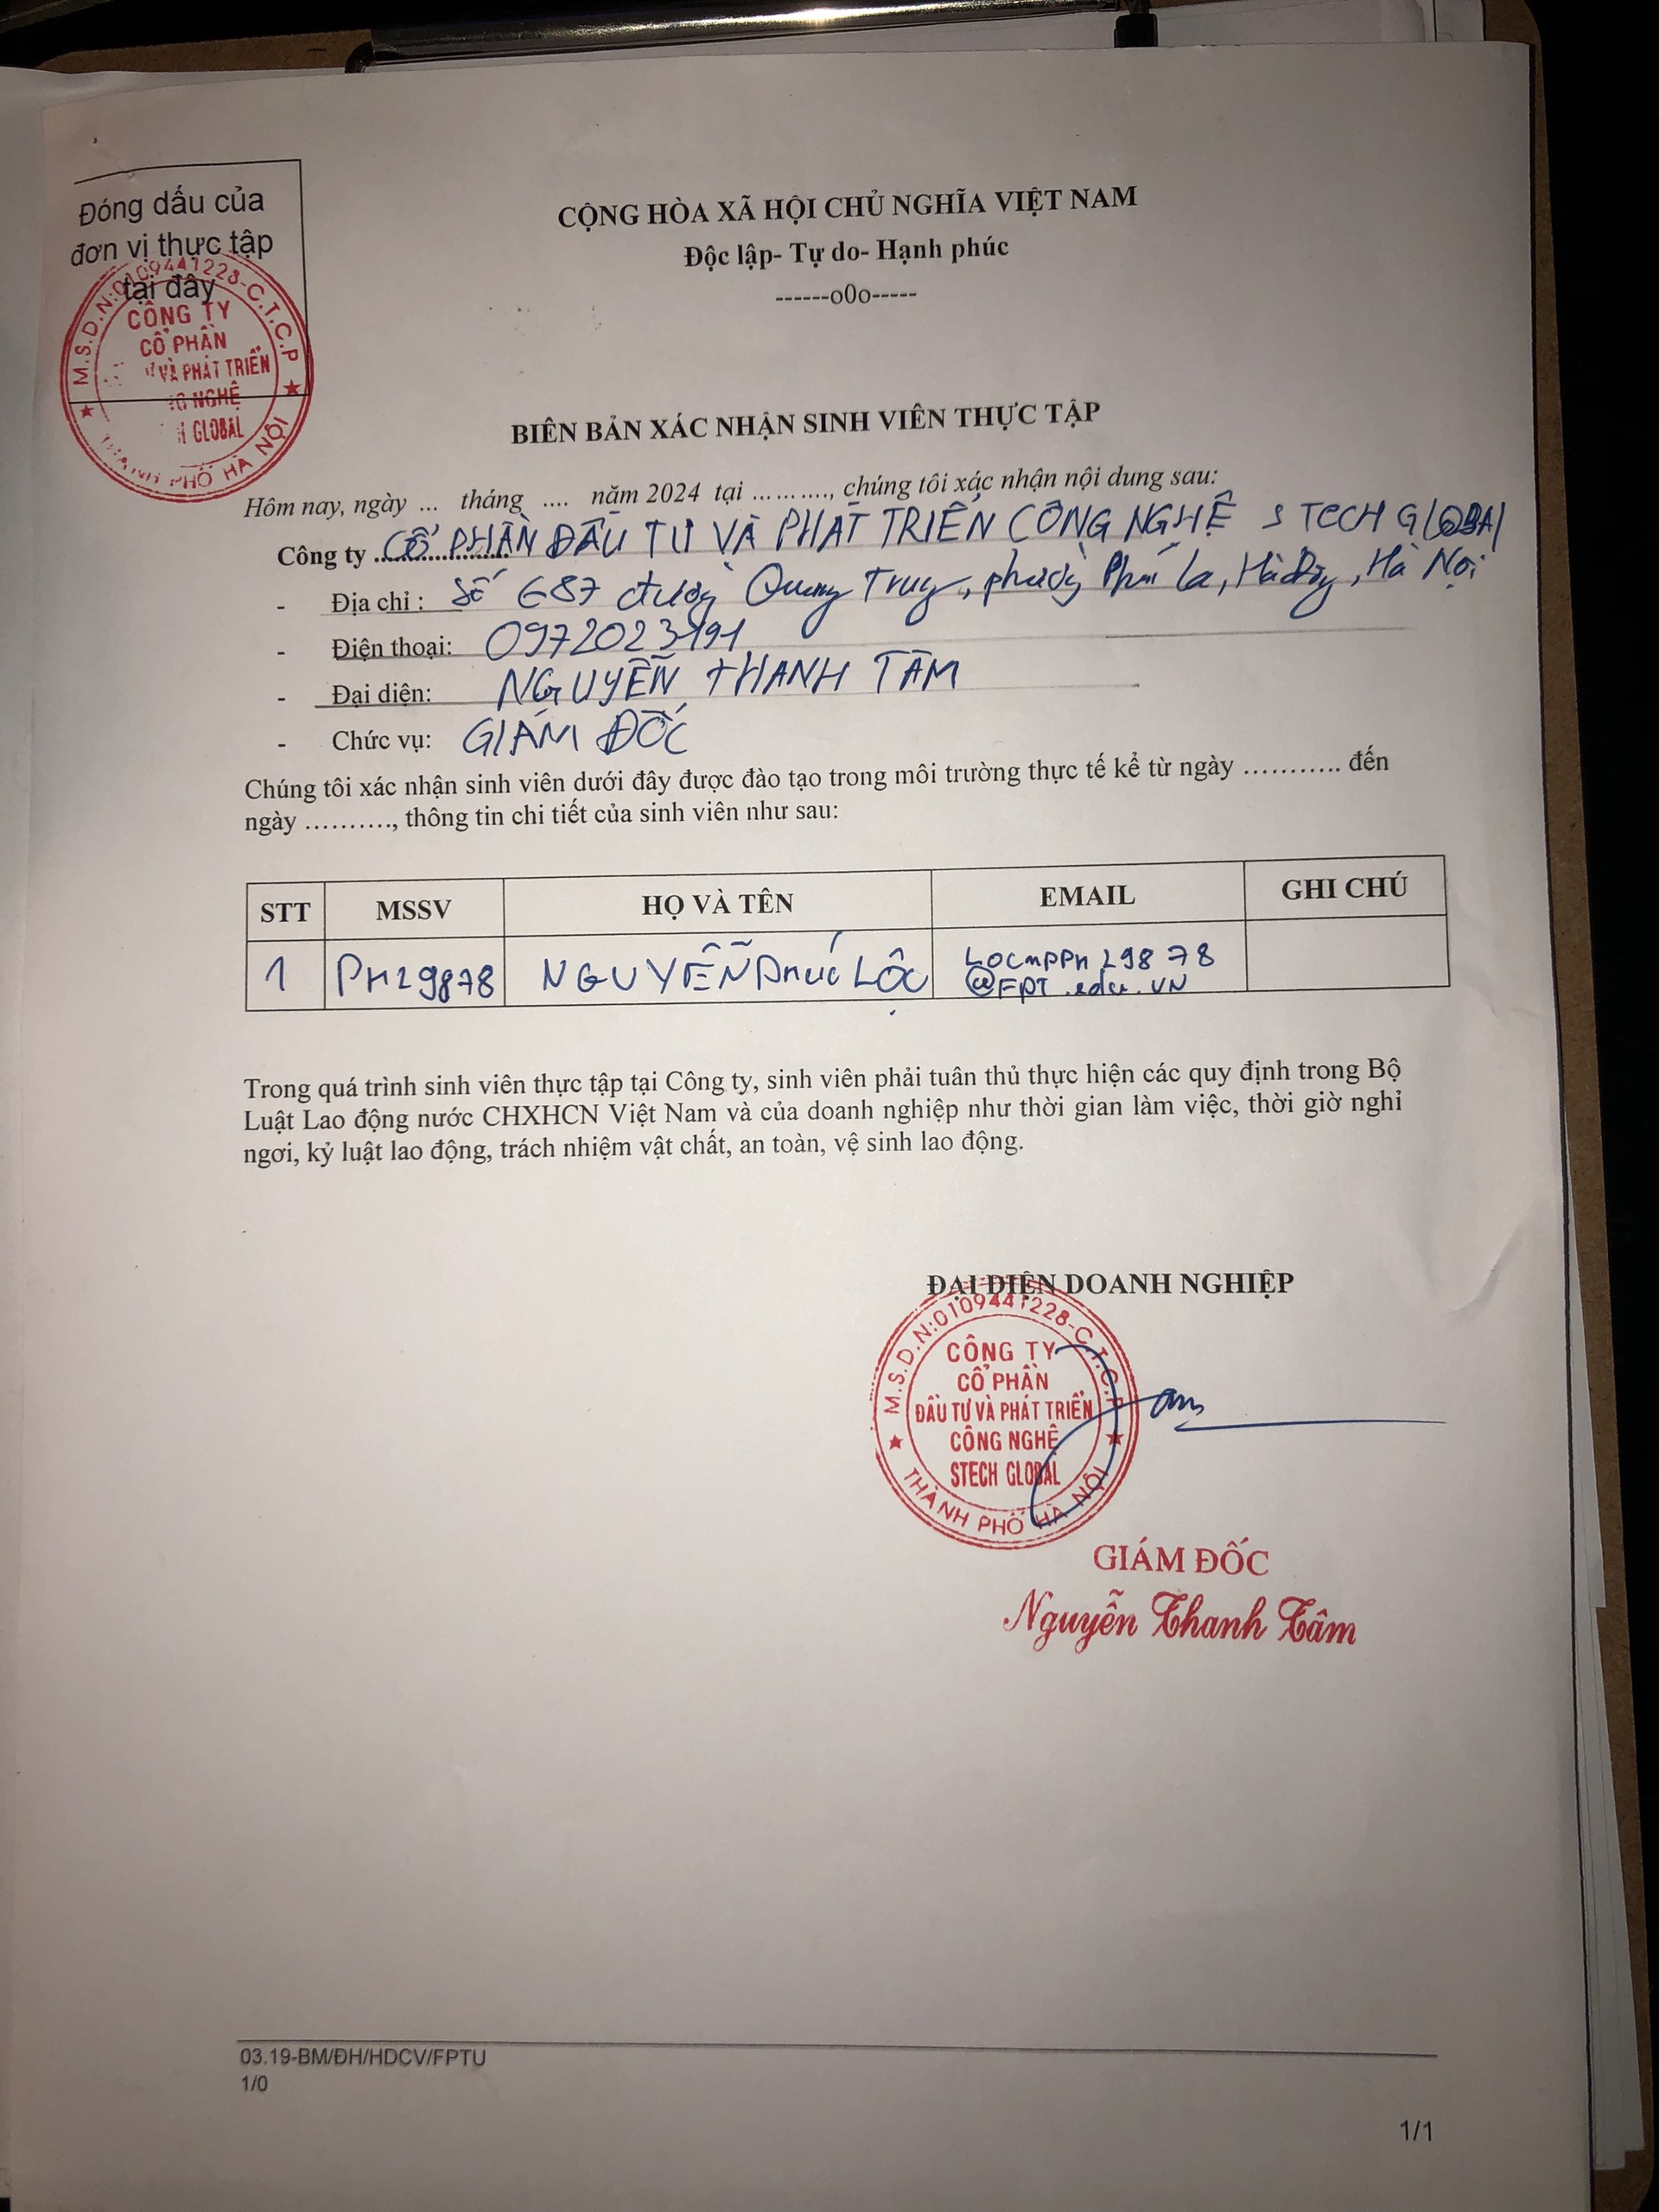 Đóng dấu của
đơn vị thực tập
tại đây
M.S.D.N:0109441228-C.T.C.P
CÔNG TY
CỔ PHẦN
VÀ PHÁT TRIỂN
NGHỆ
GLOBAL
PHỐ HÀ NỘI
CỘNG HÒA XÃ HỘI CHỦ NGHĨA VIỆT NAM
Độc lập- Tự do- Hạnh phúc
------o0o-----
BIÊN BẢN XÁC NHẬN SINH VIÊN THỰC TẬP
Hôm nay, ngày ... tháng .... năm 2024 tại ………., chúng tôi xác nhận nội dung sau:
Công ty ..................... CỔ PHẦN ĐẦU TƯ VÀ PHÁT TRIỂN CÔNG NGHỆ STECH GLOBAL
- Địa chỉ : Số 687 đường Quang Trung, phường Phú La, Hà Đông, Hà Nội
- Điện thoại: 0972023191
- Đại diện: NGUYỄN THANH TÂM
- Chức vụ: GIÁM ĐỐC
Chúng tôi xác nhận sinh viên dưới đây được đào tạo trong môi trường thực tế kể từ ngày ……….. đến
ngày ………., thông tin chi tiết của sinh viên như sau:
STT MSSV HỌ VÀ TÊN EMAIL GHI CHÚ
1 PH29878 NGUYỄN PHÚC LỘC LOCNPPH29878
@FPT.edu.VN
Trong quá trình sinh viên thực tập tại Công ty, sinh viên phải tuân thủ thực hiện các quy định trong Bộ
Luật Lao động nước CHXHCN Việt Nam và của doanh nghiệp như thời gian làm việc, thời giờ nghỉ
ngơi, kỷ luật lao động, trách nhiệm vật chất, an toàn, vệ sinh lao động.
ĐẠI DIỆN DOANH NGHIỆP
M.S.D.N:0109441228-C.T.C.P
CÔNG TY
CỔ PHẦN
ĐẦU TƯ VÀ PHÁT TRIỂN
CÔNG NGHỆ
STECH GLOBAL
THÀNH PHỐ HÀ NỘI
GIÁM ĐỐC
Nguyễn Thanh Tâm
03.19-BM/ĐH/HDCV/FPTU
1/0
1/1